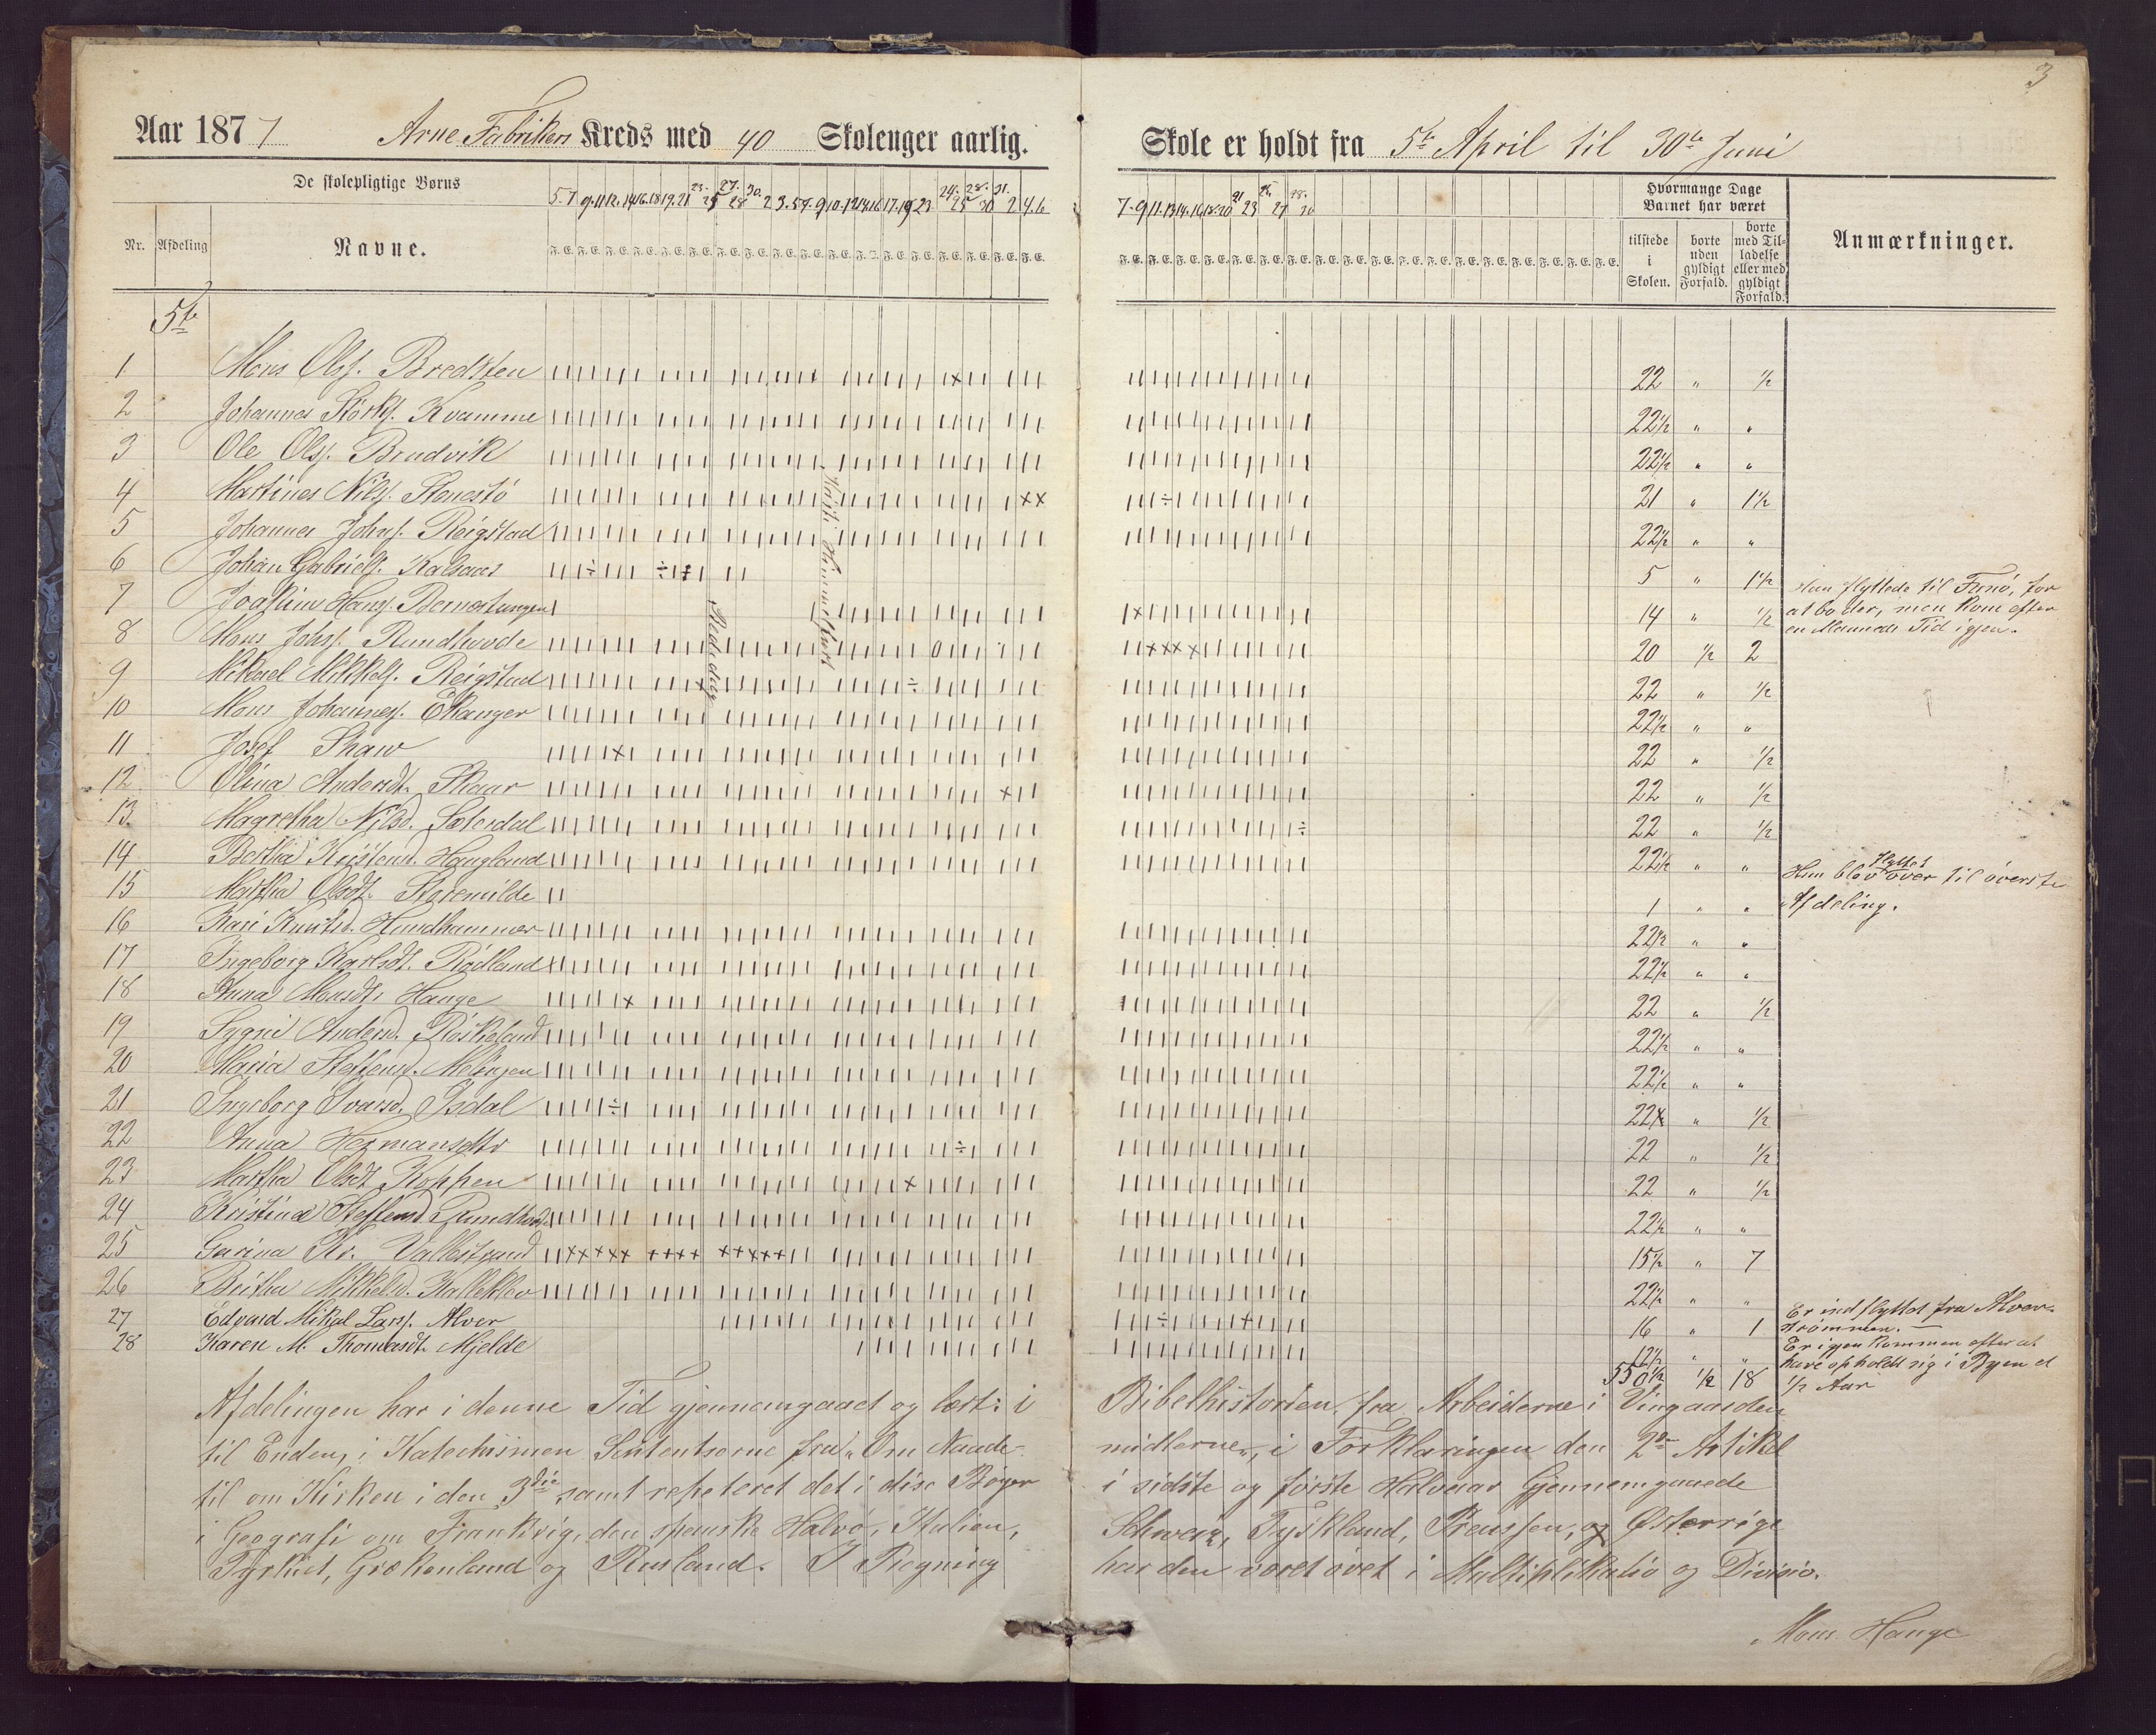 3
Aar 1877 Arne Fabrikers Kreds med 40 Skolenger aarlig.
Skole er holdt fra 5te April til 30te Juni
De skolepligtige Børns
Nr. Afdeling Navne.
Hvormange Dage Barnet har været
tilstede i Skolen. borte uden gyldigt Forfald. borte med Tilladelse eller med gyldigt Forfald.
Anmærkninger.
5te
1 Mons Olss. Bredsten 22 " ½
2 Johannes Størks. Kvamme 22½ " "
3 Ole Olss. Brudvik 22½ " "
4 Martines Nils. Stenestö 21 " 1½
5 Johannes Johns. Reigstad 22½ " "
6 Johan Gabriels. Kalsaas 5 " 1½
7 Joakim Hans. Bernestangen 14 " ½
Han flyttede til Fanö, for
at bo der, men kom efter
en Maaneds Tid igjen.
8 Mons Johs. Rundhovde 20 ½ 2
9 Mikael Mikkels. Reigstad 22 " ½
10 Mons Johanness. Ekanger 22½ " "
11 Josef Shaw 22 " ½
12 Olina Andersdt. Skaar 22 " ½
13 Magretha Nilsd. Sætredal 22 " ½
14 Bertha Kristensd. Haugland 22½ " "
15 Martha Olsdt. Storemilde 1 " "
Hun blev flyttet over til överste
Afdeling.
16 Kari Knutsd. Hundhammer 22½ " "
17 Ingeborg Karlsdt. Rödland 22½ " "
18 Anna Monsdt. Hauge 22 " ½
19 Sygni Andersd. Röskeland 22½ " "
20 Maria Steffensd. Melingen 22½ " "
21 Ingeborg Ivarsd. Isdal 22 " ½
22 Anna Hermansdtr 22 " ½
23 Martha Olsdt. Koppen 22 " ½
24 Kristina Steffensd. Rundhovde 22½ " "
25 Gurina Kr. Vallestrand 15½ " 7
26 Britha Mikkelsd. Kalleklev 22½ " "
27 Edvard Mikal Larss. Alver 16 " 1
Er indflyttet fra Alver-
strømmen.
28 Karen M. Thomasdt. Mjelde 12½ " "
Er igjen kommen efter at
have opholdt sig i Byen et
½ Aar
550½ ½ 18
Afdelingen har i denne Tid gjennemgaaet og lært: i Bibelhistorien fra Arbeiderne i Vingaarden
til Enden, i Katechismen Sententserne fra "Om Naademidlerne", i Forklaringen den 2den Artikel
til om Kirken i den 3die samt repeteret det i disse Böger i sidste og første Halvaar Gjennemgaaede
i Geografi om Frankrig, den spanske Halvö, Italien, Schweiz, Tyskland, Preussen, og Østerrige
Tyrkiet, Grækenland og Rusland. I Regning har den været övet i Multiplikatio og Divisio.
Mons Hauge